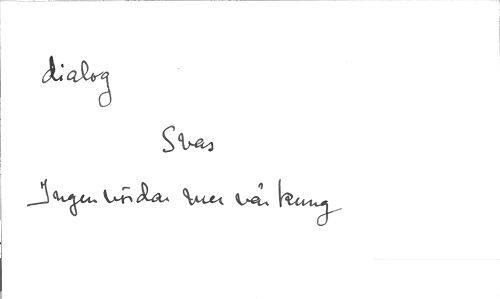 dialog
Svas
Ingen vördar mer vår kung